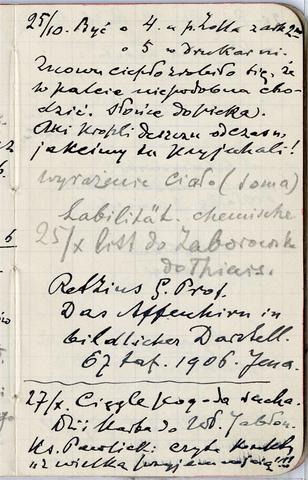 25/10. Być o 4. u p. Żółta zark 2
o 5 w Drukarni.
Znowu ciepło zrobiło się, że
w palcie niepodobna cho-
dzić. Słońce dopieka.
Ani kropli deszczu odczasu,
jakeśmy tu przyjechali!
wyrażenie ciało (soma)
Labilität. chemische
25/X list do Zaborowsk
do Thiais.
Retzius G. Prof.
Das Affenhirn in
bildlicher Darstell.
67 taf. 1906. Jena.
27/X. Ciągle pogoda sucha.
do Jabłon.
Ks. Pawlicki czyta
"z wielką przyjemnością"!!
6